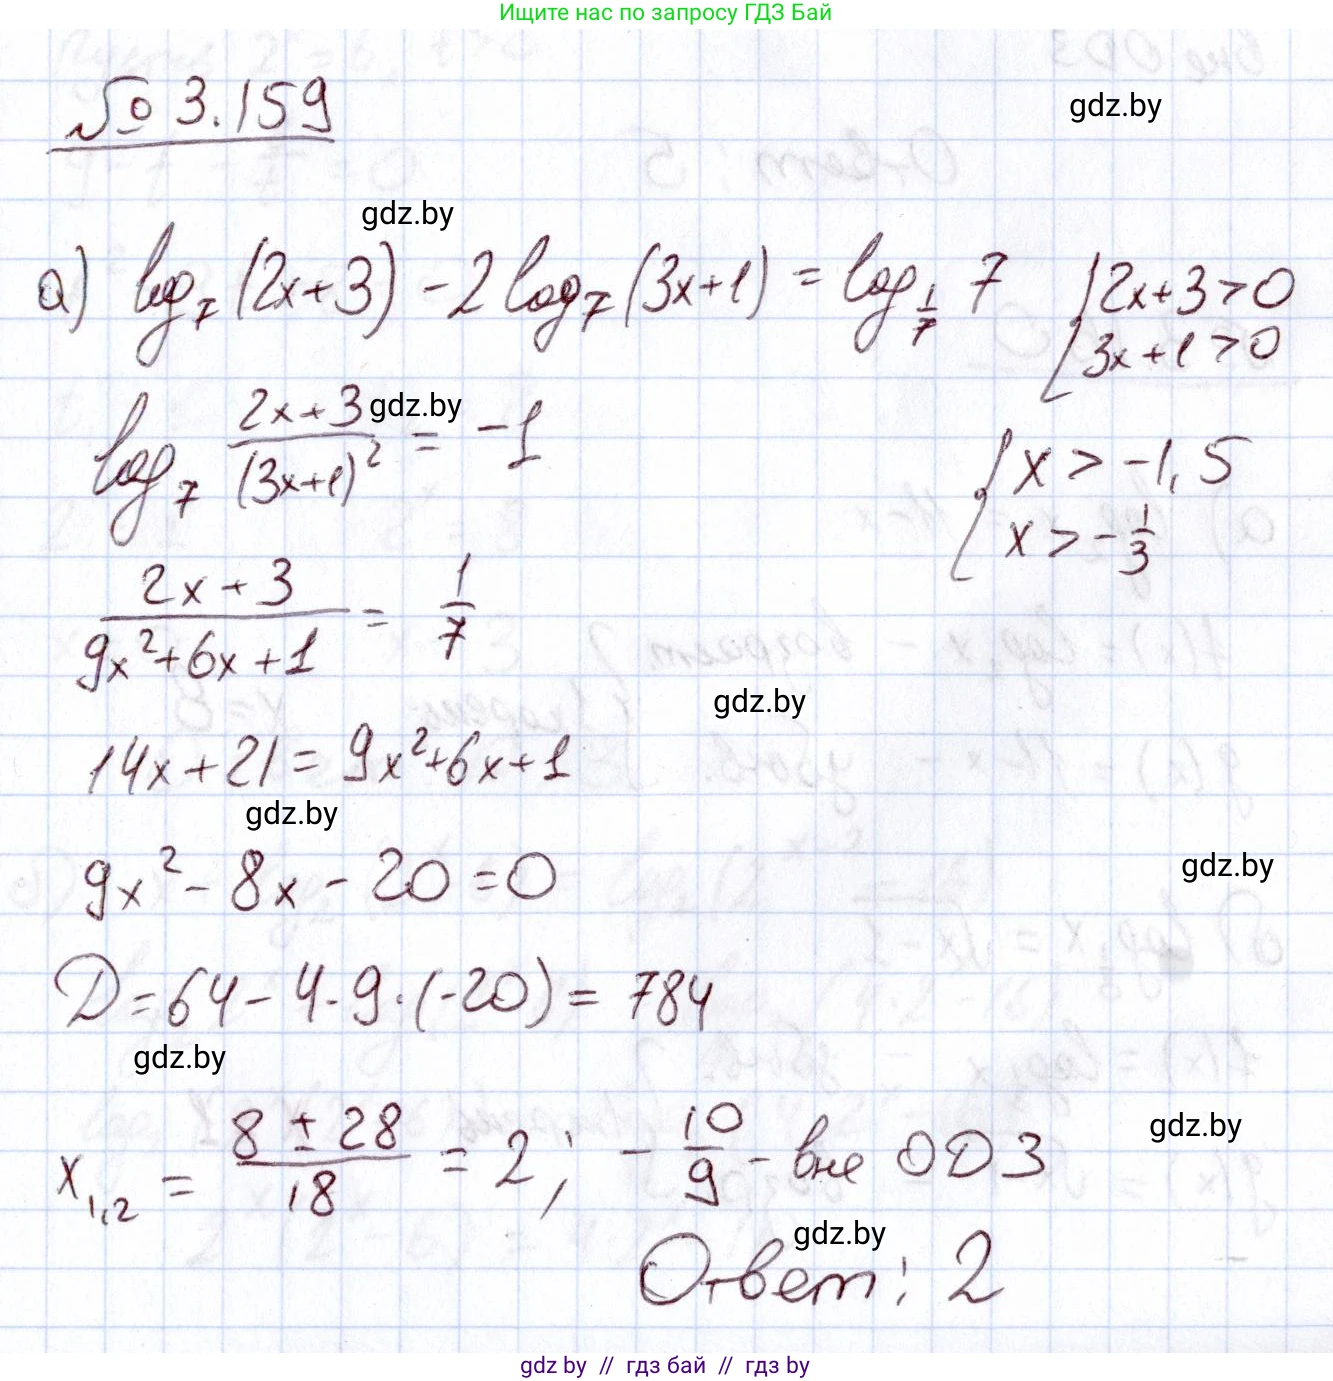 Ищите нас по запросу ГДЗ Бай
№ 3.159
gdz.by
gdz.by
а) log₇(2x+3) - 2log₇(3x+1) = log_{1/7} 7 { 2x+3>0
3x+1>0
log₇ (2x+3)/(3x+1)² = -1
gdz.by
{ x > -1,5
x > -1/3
(2x+3)/(9x²+6x+1) = 1/7
gdz.by
14x+21 = 9x²+6x+1
gdz.by
9x² - 8x - 20 = 0
gdz.by
D = 64 - 4·9·(-20) = 784
gdz.by
x₁,₂ = (8 ± 28)/18 = 2; -10/9 - вне ОДЗ
gdz.by
gdz.by
Ответ: 2
gdz by // гдз бай // гдз by